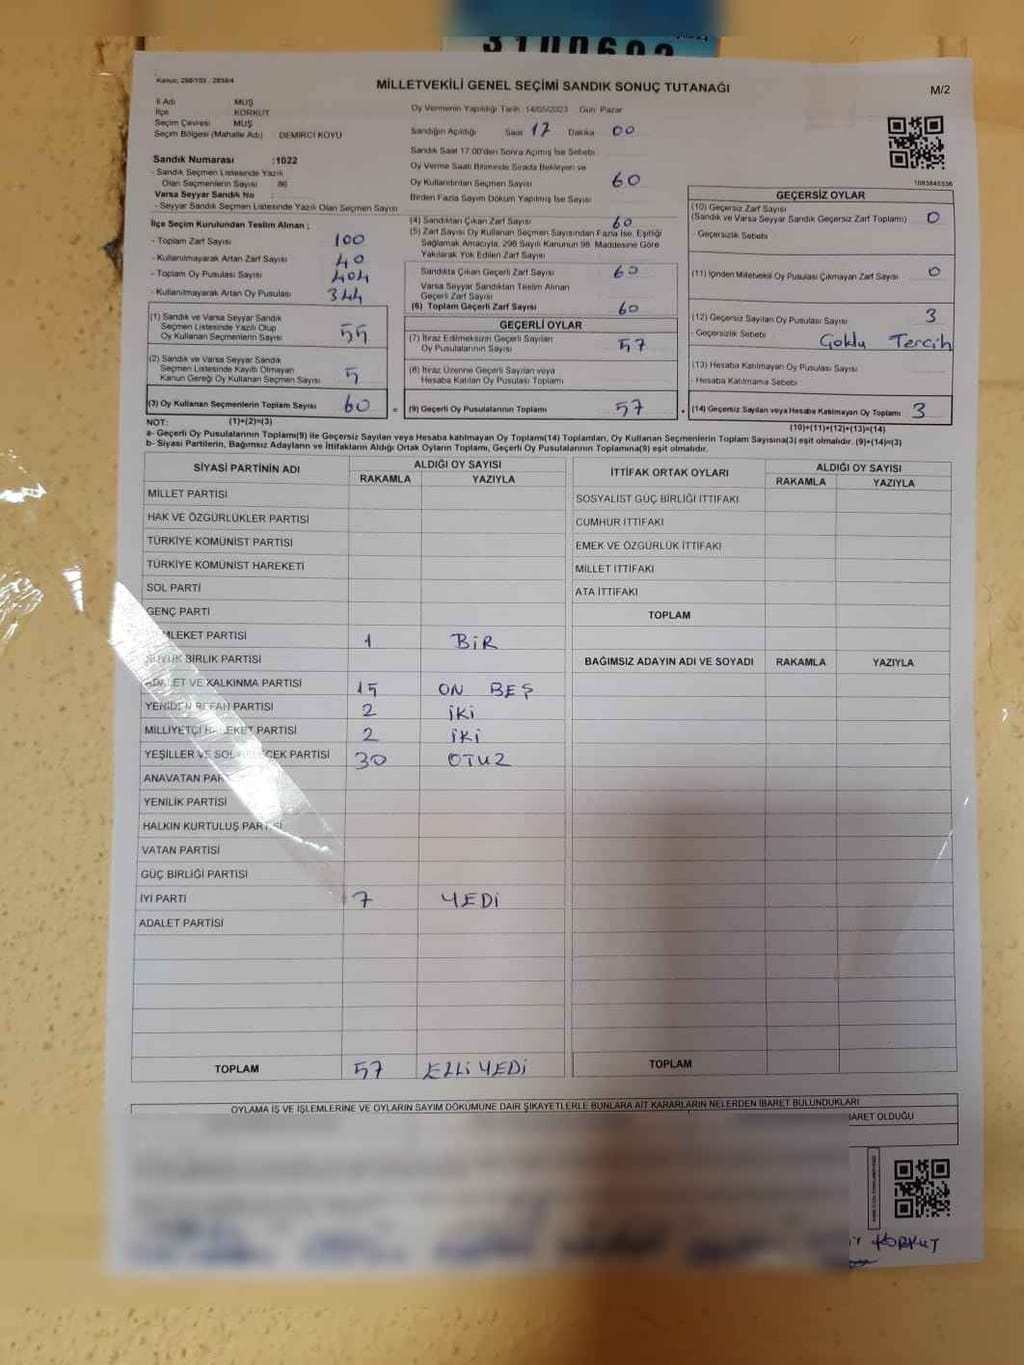 Kanun: 298/103 , 2839/4
MİLLETVEKİLİ GENEL SEÇİMİ SANDIK SONUÇ TUTANAĞI
M/2
İl Adı MUŞ
İlçe KORKUT
Seçim Çevresi MUŞ
Seçim Bölgesi (Mahalle Adı) DEMİRCİ KÖYÜ
Sandık Numarası :1022
- Sandık Seçmen Listesinde Yazılı
Olan Seçmenlerin Sayısı 86
Varsa Seyyar Sandık No :
- Seyyar Sandık Seçmen Listesinde Yazılı Olan Seçmen Sayısı
Oy Vermenin Yapıldığı Tarih: 14/05/2023 Gün: Pazar
Sandığın Açıldığı Saat 17 Dakika 00
Sandık Saat 17:00'den Sonra Açımış İse Sebebi
Oy Verme Saati Bitiminde Sırada Bekleyen ve
Oy Kullandırılan Seçmen Sayısı 60
Birden Fazla Sayım Döküm Yapılmış İse Sayısı
1083845336
İlçe Seçim Kurulundan Teslim Alınan ;
- Toplam Zarf Sayısı 100
- Kullanılmayarak Artan Zarf Sayısı 40
- Toplam Oy Pusulası Sayısı 404
- Kullanılmayarak Artan Oy Pusulası 344
(1) Sandık ve Varsa Seyyar Sandık
Seçmen Listesinde Yazılı Olup
Oy Kullanan Seçmenlerin Sayısı 55
(2) Sandık ve Varsa Seyyar Sandık
Seçmen Listesinde Kayıtlı Olmayan
Kanun Gereği Oy Kullanan Seçmen Sayısı 5
(3) Oy Kullanan Seçmenlerin Toplam Sayısı 60
(4) Sandıktan Çıkan Zarf Sayısı 60
(5) Zarf Sayısı Oy Kullanan Seçmen Sayısından Fazla İse, Eşitliği
Sağlamak Amacıyla, 298 Sayılı Kanunun 98. Maddesine Göre
Yakılarak Yok Edilen Zarf Sayısı
Sandıkta Çıkan Geçerli Zarf Sayısı 60
Varsa Seyyar Sandıktan Teslim Alınan
Geçerli Zarf Sayısı
(6) Toplam Geçerli Zarf Sayısı 60
GEÇERLİ OYLAR
(7) İtiraz Edilmeksizin Geçerli Sayılan
Oy Pusulalarının Sayısı 57
(8) İtiraz Üzerine Geçerli Sayılan veya
Hesaba Katılan Oy Pusulası Toplamı
= (9) Geçerli Oy Pusulalarının Toplamı 57
GEÇERSİZ OYLAR
(10) Geçersiz Zarf Sayısı
(Sandık ve Varsa Seyyar Sandık Geçersiz Zarf Toplamı) 0
- Geçersizlik Sebebi
(11) İçinden Milletvekili Oy Pusulası Çıkmayan Zarf Sayısı 0
(12) Geçersiz Sayılan Oy Pusulası Sayısı 3
- Geçersizlik Sebebi Çoklu Tercih
(13) Hesaba Katılmayan Oy Pusulası Sayısı
- Hesaba Katılmama Sebebi
(14) Geçersiz Sayılan veya Hesaba Katılmayan Oy Toplamı 3
NOT: (1)+(2)=(3) (10)+(11)+(12)+(13)=(14)
a- Geçerli Oy Pusulalarının Toplamı(9) ile Geçersiz Sayılan veya Hesaba katılmayan Oy Toplamı(14) Toplamları, Oy Kullanan Seçmenlerin Toplam Sayısına(3) eşit olmalıdır. (9)+(14)=(3)
b- Siyasi Partilerin, Bağımsız Adayların ve İttifakların Aldığı Ortak Oyların Toplamı, Geçerli Oy Pusulalarının Toplamına(9) eşit olmalıdır.
SİYASİ PARTİNİN ADI ALDIĞI OY SAYISI
RAKAMLA YAZIYLA
MİLLET PARTİSİ
HAK VE ÖZGÜRLÜKLER PARTİSİ
TÜRKİYE KOMÜNİST PARTİSİ
TÜRKİYE KOMÜNİST HAREKETİ
SOL PARTİ
GENÇ PARTİ
MLEKET PARTİSİ 1 BİR
BÜYÜK BİRLİK PARTİSİ
ADALET VE KALKINMA PARTİSİ 15 ON BEŞ
YENİDEN REFAH PARTİSİ 2 İKİ
MİLLİYETÇİ HAREKET PARTİSİ 2 İKİ
YEŞİLLER VE SOL GELECEK PARTİSİ 30 OTUZ
ANAVATAN PAR
YENİLİK PARTİSİ
HALKIN KURTULUŞ PARTİSİ
VATAN PARTİSİ
GÜÇ BİRLİĞİ PARTİSİ
İYİ PARTİ 7 YEDİ
ADALET PARTİSİ
TOPLAM 57 ELLİ YEDİ
İTTİFAK ORTAK OYLARI ALDIĞI OY SAYISI
RAKAMLA YAZIYLA
SOSYALİST GÜÇ BİRLİĞİ İTTİFAKI
CUMHUR İTTİFAKI
EMEK VE ÖZGÜRLÜK İTTİFAKI
MİLLET İTTİFAKI
ATA İTTİFAKI
TOPLAM
BAĞIMSIZ ADAYIN ADI VE SOYADI RAKAMLA YAZIYLA
TOPLAM
OYLAMA İŞ VE İŞLEMLERİNE VE OYLARIN SAYIM DÖKÜMÜNE DAİR ŞİKAYETLERLE BUNLARA AİT KARARLARIN NELERDEN İBARET BULUNDUKLARI
BARET OLDUĞU
KORKUT